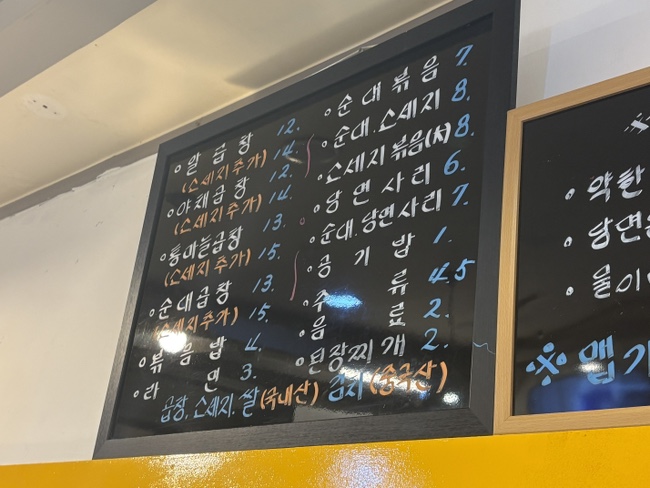 ○알곱창 12.
(소세지추가) 14.
○야채곱창 12.
(소세지추가) 14.
○통마늘곱창 13.
(소세지추가) 15.
○순대곱창 13.
(소세지추가) 15.
○볶음밥 4.
○라면 3.
○순대볶음 7.
○순대.소세지 8.
○소세지볶음(사) 8.
○당면사리 6.
○순대.당면사리 7.
○공기밥 1.
○주류 4.5
○음료 2.
○된장찌개 2.
곱창, 소세지, 쌀(국내산) 김치(중국산)
※
당면
물이
※ 맵기